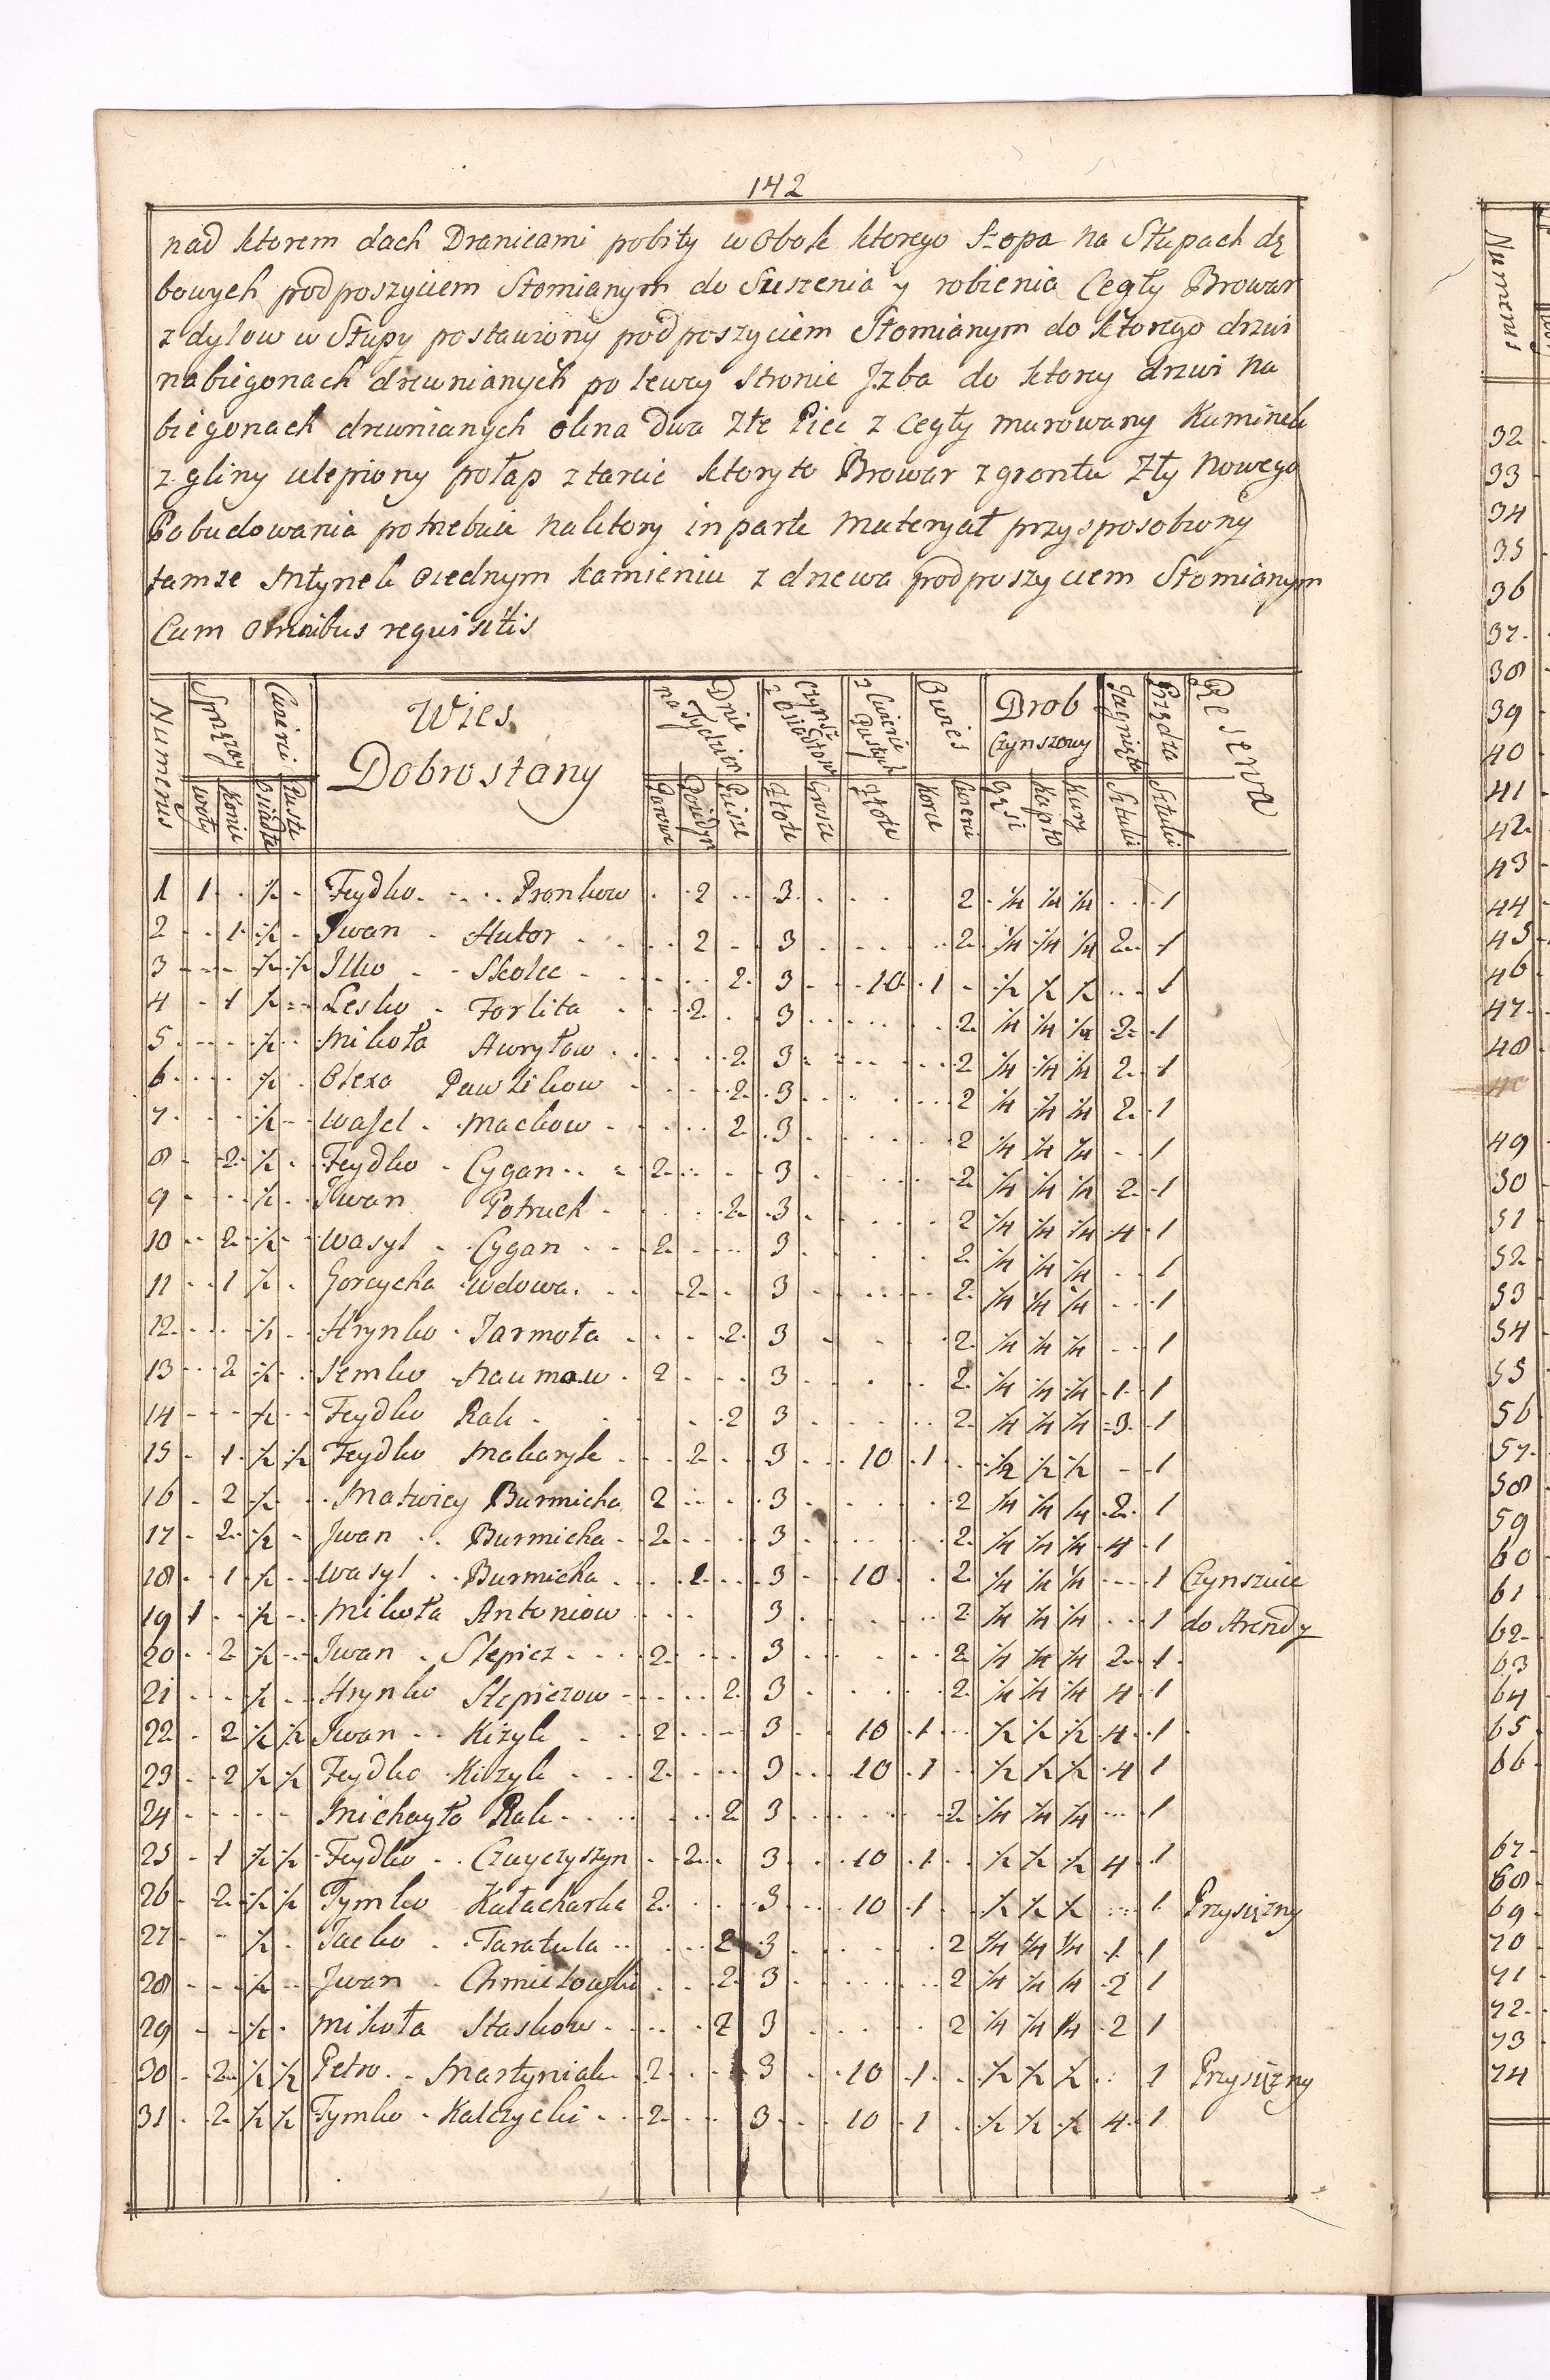 142
nad ktorem dach Dranicami pobity w Obok ktorego Szopa na Słupach dę
bowych pod poszyciem Słomianym do Suszenia y robienia Cegły Browar
z dylow w Słupy postawiony pod poszyciem Słomianym do ktorego drzwi
na biegonach drewnianych po lewey stronie Jzba do ktorey drzwi na
biegonach drewnianych okna dwa złe Piec z Cegły murowany Kuminek
z gliny ulepiony połap z tarcic ktoryto Browar z grontu Zły Nowego
Pobudowania potrzebuie na ktory in parte materyał przysposobiony
tamze Młynek o iednym kamieniu z drzewa pod poszyciem Słomianym
Cum omnibus requisitis
Numerus Sprzęzay Cwierci Wies Dobrostany Dnie na Tydzien Czynsz z Osiadłow z Cwierci Pustych Owies Drob Czynszowy Jagnięta Przędza Reserva
woły Konie Osiadłe Puste Parowe Poiedyn Piesze Złote Grosze Złote Korce Cwierci Gęsi Kapło Kury Sztuki Sztuki
1 1 ½ Feydko Pronkow 2 3 2 ¼ ¼ ¼ 1
2 1 ½ Jwan Hutor 2 3 2 ¼ ¼ ¼ 2 1
3 ½ ½ Jlko Skolec 2 3 10 1 ½ ½ ½ 1
4 1 ½ Lesko Forlita 2 3 2 ¼ ¼ ¼ 2 1
5 ½ Mikoła Hawryłow 2 3 2 ¼ ¼ ¼ 2 1
6 ½ Olexa Pawlikow 2 3 2 ¼ ¼ ¼ 2 1
7 ½ Wasel Mackow 2 3 2 ¼ ¼ ¼ 1
8 2 ½ Feydko Cygan 2 3 2 ¼ ¼ ¼ 2 1
9 ½ Jwan Potruch 2 3 2 ¼ ¼ ¼ 4 1
10 2 ½ Wasyl Cygan 2 3 2 ¼ ¼ ¼ 1
11 1 ½ Gorcycha Wdowa 2 3 2 ¼ ¼ ¼ 1
12 ½ Hrynko Jarmoła 2 3 2 ¼ ¼ ¼ 1
13 2 ½ Semko Naumow 2 3 2 ¼ ¼ ¼ 1 1
14 ½ Feydko Rak 2 3 2 ¼ ¼ ¼ 3 1
15 1 ½ ½ Feydko Makaryk 2 3 10 1 ½ ½ ½ 1
16 2 ½ Matwiey Burmicha 2 3 2 ¼ ¼ ¼ 2 1
17 2 ½ Jwan Burmicha 2 3 2 ¼ ¼ ¼ 4 1
18 1 ½ Wasyl Burmicha 2 3 10 2 ¼ ¼ ¼ 1 Czynszuie
19 1 ½ Mikoła Antoniow 3 2 ¼ ¼ ¼ 1 do Arendy
20 2 ½ Jwan Slepicz 2 3 2 ¼ ¼ ¼ 2 1
21 ½ Hrynko Slepiczow 2 3 2 ¼ ¼ ¼ 4 1
22 2 ½ ½ Jwan Kizyk 2 3 10 1 ½ ½ ½ 4 1
23 2 ½ ½ Feydko Kizyk 2 3 10 1 ½ ½ ½ 4 1
24 Michayło Rak 2 3 2 ¼ ¼ ¼ 1
25 1 ½ ½ Feydko Czuyczyszyn 2 3 10 1 ½ ½ ½ 4 1
26 2 ½ ½ Tymko Kałacharka 2 3 10 1 ½ ½ ½ 1 Przysiężny
27 ½ Jacko Taratula 2 3 2 ¼ ¼ ¼ 1 1
28 ½ Jwan Chmielowski 2 3 2 ¼ ¼ ¼ 2 1
29 ½ Mikoła Staskow 2 3 2 ¼ ¼ ¼ 2 1
30 2 ½ ½ Petro Martyniak 2 3 10 1 ½ ½ ½ 1 Przysiężny
31 2 ½ ½ Tymko Kalczycki 2 3 10 1 ½ ½ ½ 4 1
Numerus
32
33
34
35
36
37
38
39
40
41
42
43
44
45
46
47
48
49
50
51
52
53
54
55
56
57
58
59
60
61
62
63
64
65
66
67
68
69
70
71
72
73
74